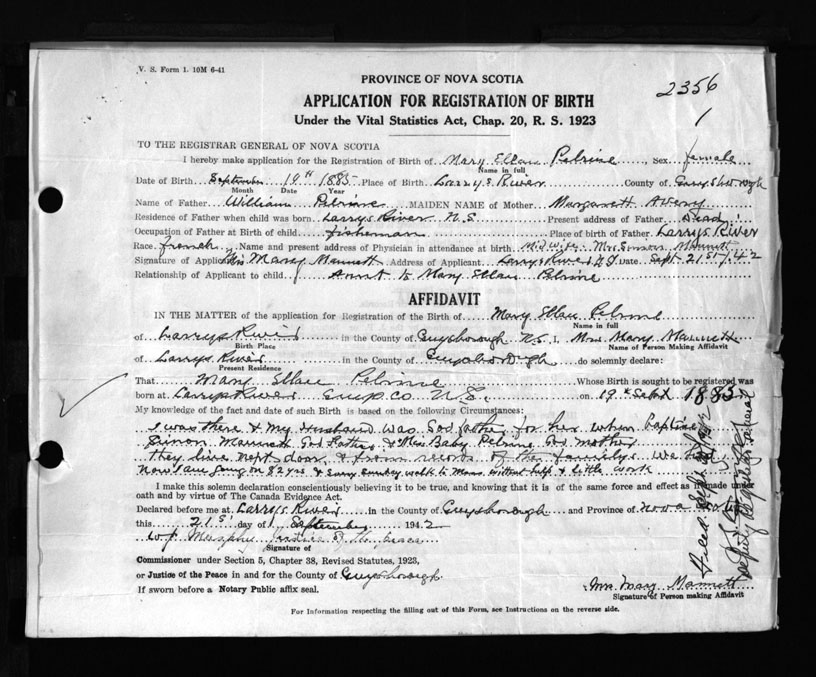 V. S. Form 1. 10M 6-41
2356
1
PROVINCE OF NOVA SCOTIA
APPLICATION FOR REGISTRATION OF BIRTH
Under the Vital Statistics Act, Chap. 20, R. S. 1923
TO THE REGISTRAR GENERAL OF NOVA SCOTIA
I hereby make application for the Registration of Birth of Mary Ellau Pelrine, Sex female
Name in full
Date of Birth September 19th 1885 Place of Birth Larrys River County of Guysborough
Month Day Year
Name of Father William Pelrine MAIDEN NAME of Mother Margarett Avery
Residence of Father when child was born Larrys River N.S. Present address of Father Dead
Occupation of Father at Birth of child fisherman Place of birth of Father Larrys River
Race french Name and present address of Physician in attendance at birth Mid Wife Mrs Simon Mannett
Signature of Applicant Mrs Mary Mannett Address of Applicant Larrys River N.S. Date Sept 21st /42
Relationship of Applicant to child Aunt to Mary Ellau Pelrine
AFFIDAVIT
IN THE MATTER of the application for Registration of the Birth of Mary Ellau Pelrine
Name in full
of Larrys River in the County of Guysborough N.S. I, Mrs Mary Mannett
Birth Place Name of Person Making Affidavit
of Larrys River in the County of Guysborough do solemnly declare:
Present Residence
That Mary Ellau Pelrine Whose Birth is sought to be registered was
born at Larrys River Guys. Co. N.S. on 19th Sept 1885
My knowledge of the fact and date of such Birth is based on the following Circumstances:
I was there & my Husband was God father for her when baptise
Simon Mannett God Father & Mrs Baby Pelrine God mother
they live next door, & from records of the familys
Now I am going on 82 yrs & every sunday walk to Mass without help & little work
I make this solemn declaration conscientiously believing it to be true, and knowing that it is of the same force and effect as if made under
oath and by virtue of The Canada Evidence Act.
Declared before me at Larrys River in the County of Guysborough and Province of Nova Scotia
this 21st day of September 1942
W. J. Murphy Justice of the peace
Signature of
Commissioner under Section 5, Chapter 38, Revised Statutes, 1923,
or Justice of the Peace in and for the County of Guysborough
If sworn before a Notary Public affix seal.
Mrs Mary Mannett
Signature of Person making Affidavit
For Information respecting the filling out of this Form, see Instructions on the reverse side.
Deputy Registrar General